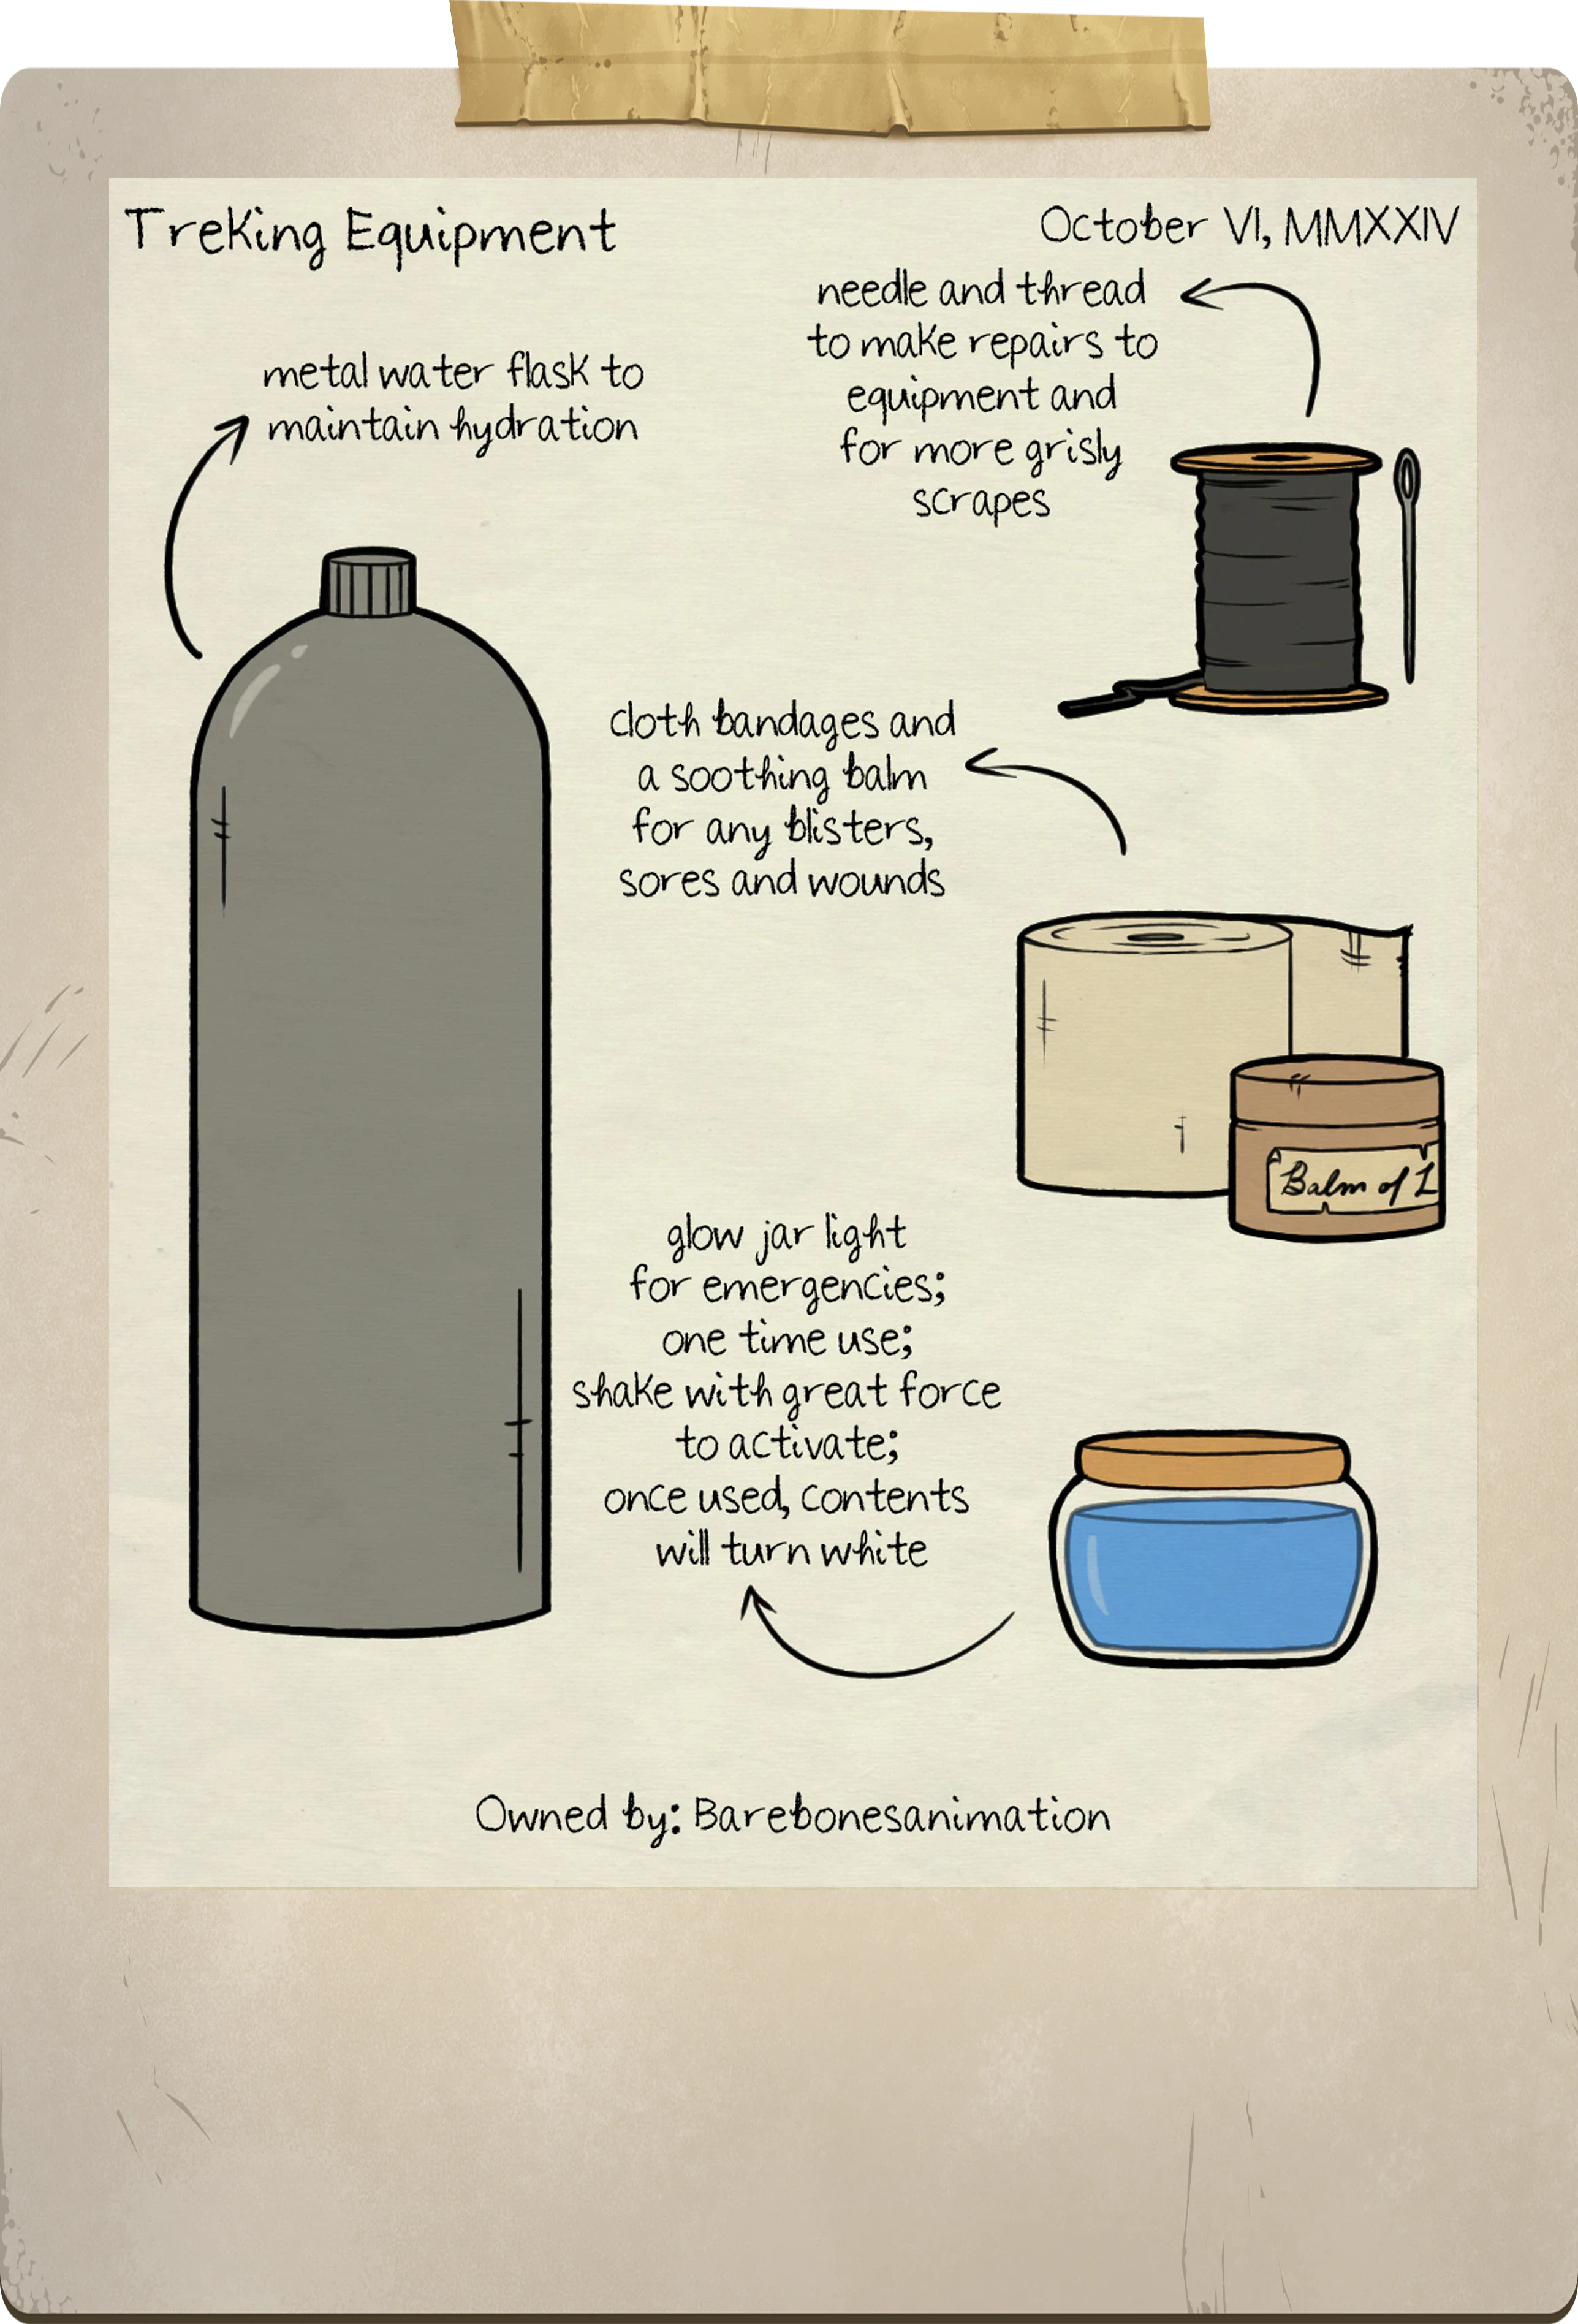 Treking Equipment
October VI, MMXXIV
metal water flask to
maintain hydration
needle and thread
to make repairs to
equipment and
for more grisly
scrapes
cloth bandages and
a soothing balm
for any blisters,
sores and wounds
Balm of L
glow jar light
for emergencies;
one time use;
shake with great force
to activate;
once used, contents
will turn white
Owned by: Barebonesanimation